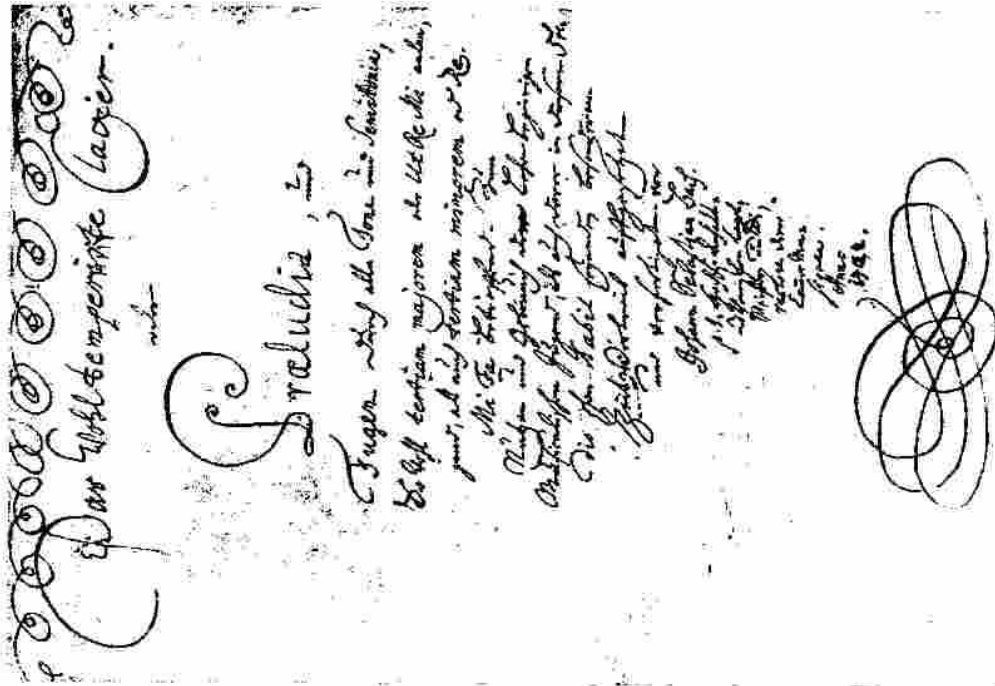 Das Wohltemperirte Clavier.
oder
Præludia, und
Fugen durch alle Tone und Semitonia,
So wohl tertiam majorem oder Ut Re Mi anlan,
gend, als auch tertiam minorem oder Re
Mi Fa betreffend. Zum
Nutzen und Gebrauch der Lehrbegierigen
Musicalischen Jugend, als auch derer in diesem stu,
dio schon habil seyenden besonderem
Zeitvertreib auffgesetzet
und verfertiget von
Johann Sebastian Bach.
Meistern und Di,
rectore derer
Camer Mu,
siquen.
Anno
1722.